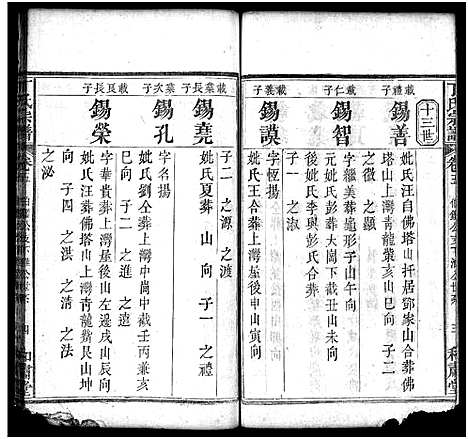 十三世
載禮子
錫善
妣氏汪自佛塔山托居鄧家山合葬佛
塔山上灣青龍嘴亥山巳向 子二
之徵 之顯
載仁子
錫智
字繼美葬龜形午山子向
妣氏彭葬大崗下截丑山未向
後妣氏李與彭氏合葬
載義子
錫謨
字恆揚
妣氏王合葬上灣屋後申山寅向
子二 之源 之渡
載葉長子
錫堯
妣氏夏葬 山 向 子一 之禮
載葉次子
錫孔
字名揚
妣氏劉仝葬上灣中崗中截壬丙兼亥
巳向 子二 之進 之遠
載良長子
錫榮
字華貴葬上灣屋後亥山巳向
妣氏吳葬佛塔山上灣青龍嘴艮山坤
向 子四 之洪 之清 之法
之泌